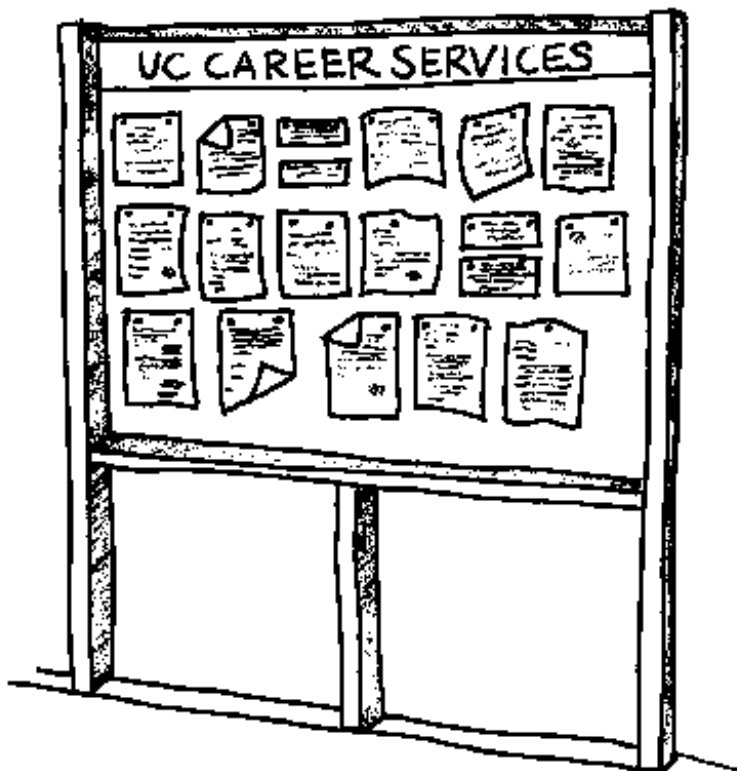 UC CAREER SERVICES